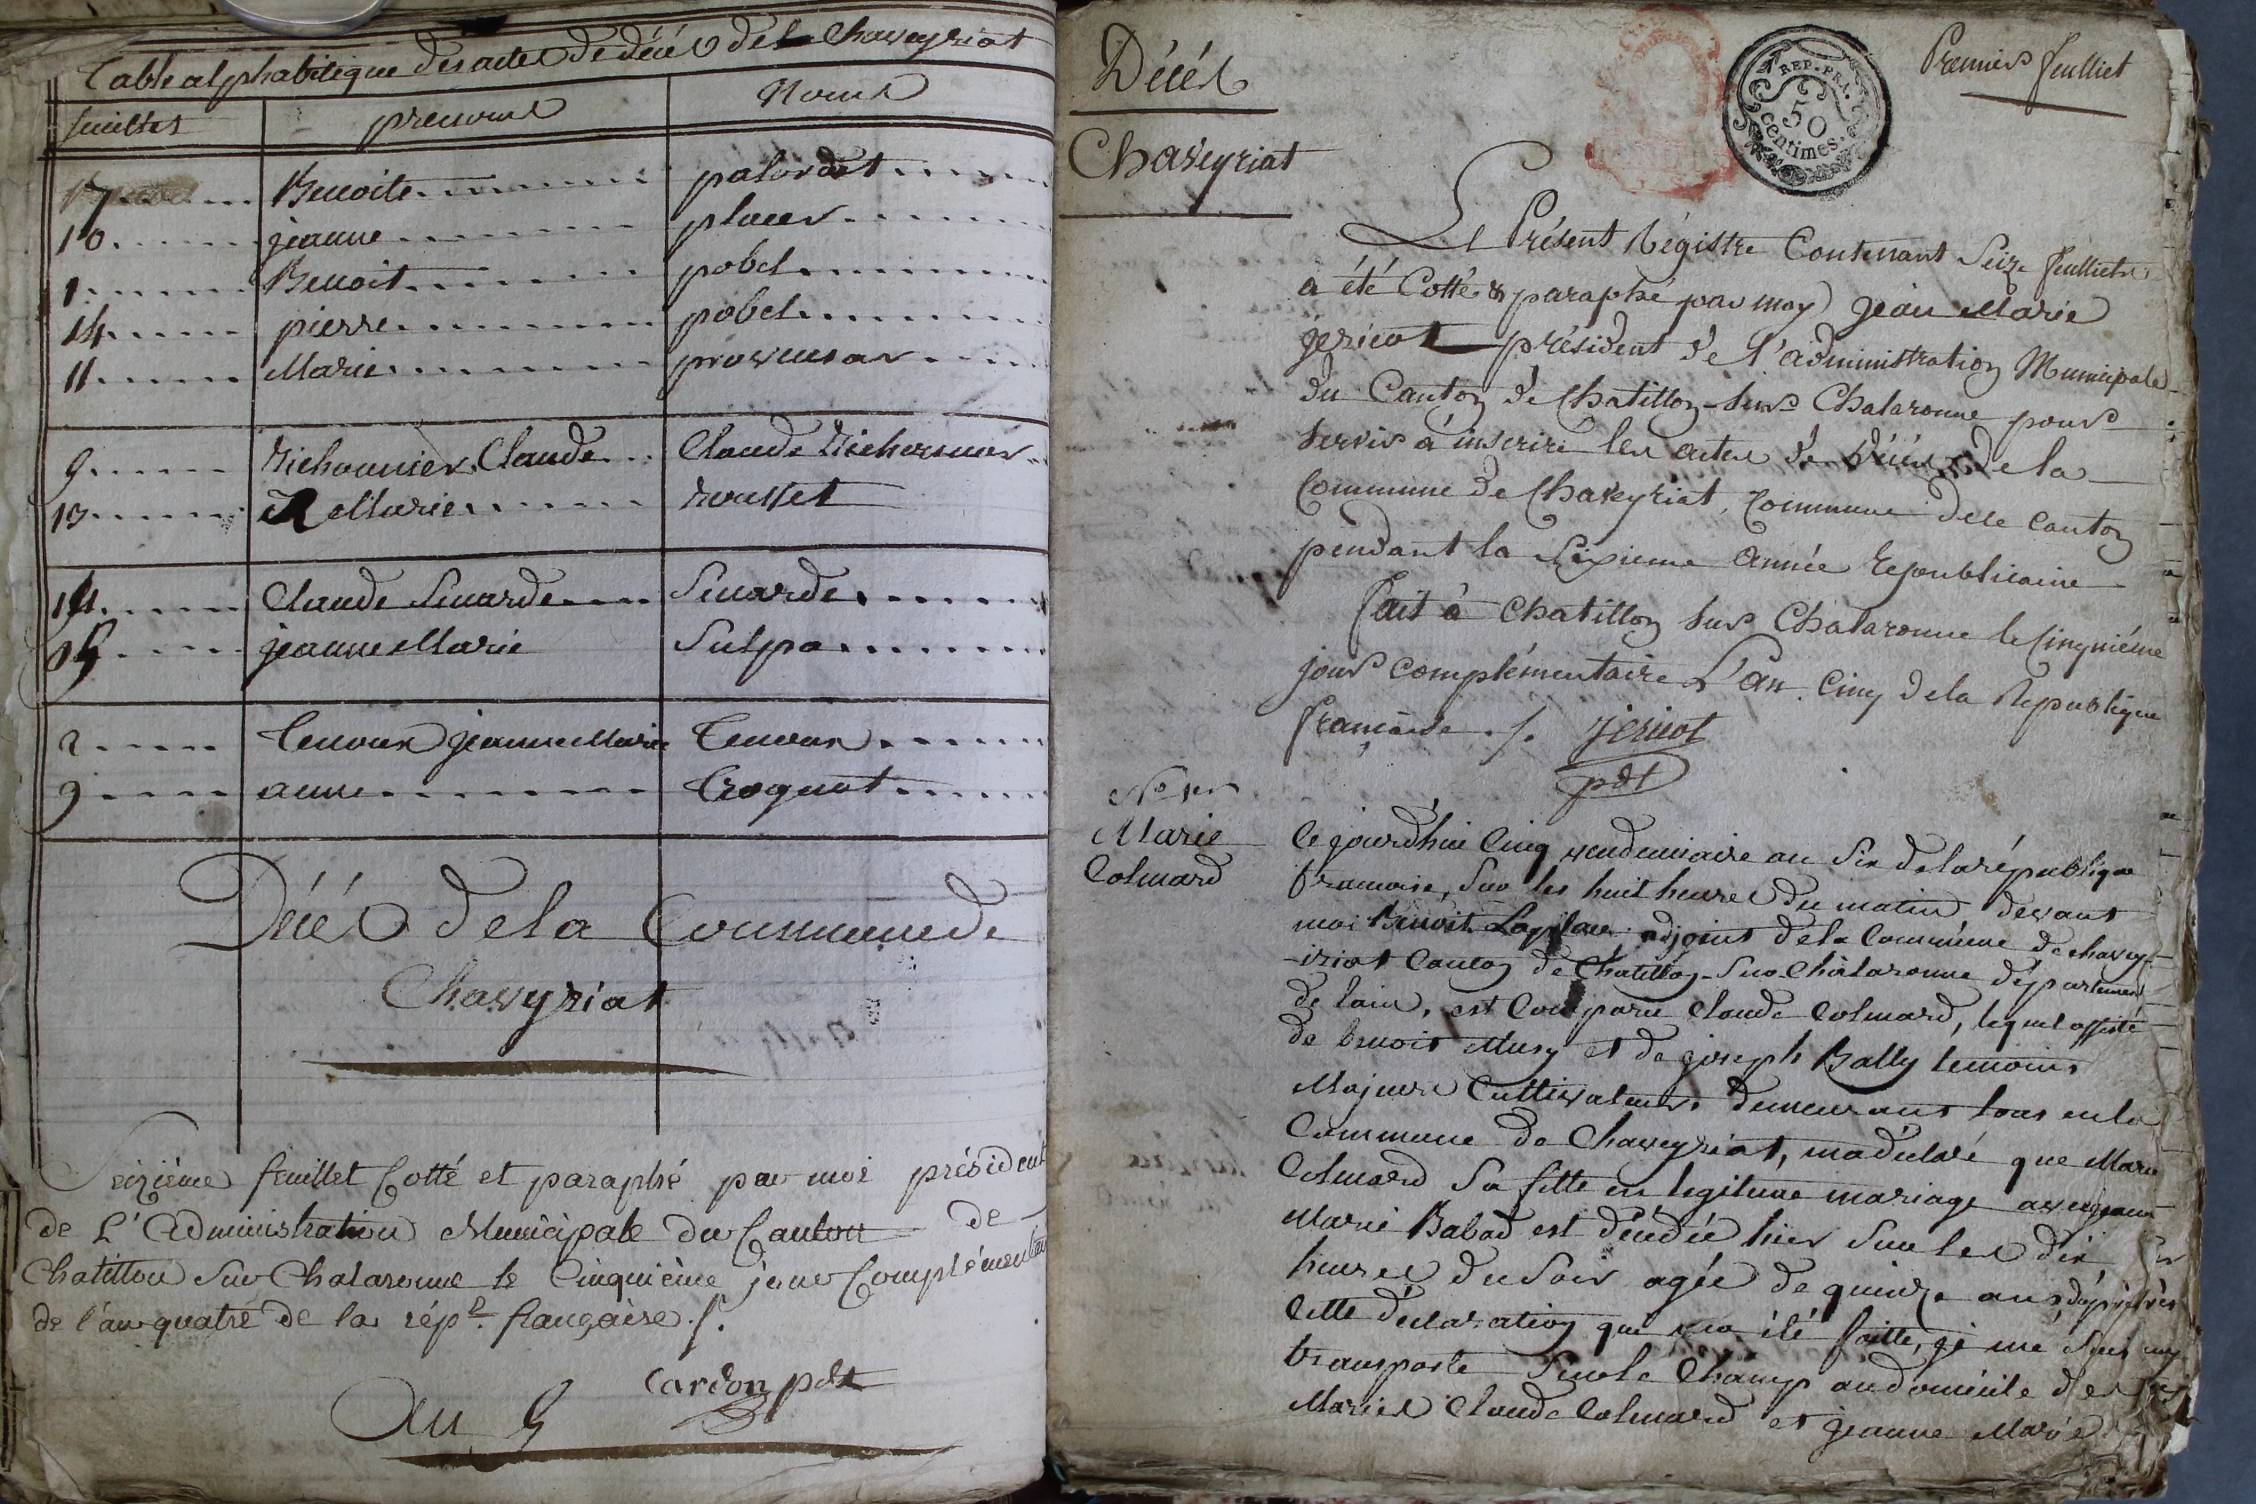 Table alphabetique des actes de décés de la Chaveyriat
feuilles prenoms Noms
17 Benoite palordet
10 jeanne placer
1 Benoit pobel
14 pierre pobel
11 Marie provensar
9 Richonnier Claude Claude Richonnier
13 Marie Rousset
14 Claude Sinarde Sinarde
15 jeanne Marie Sulpa
2 Tenoux jeanne Marie Tenoux
9 anne Troquat
Décés de la Commune de
Chaveyriat
Seizième feuillet Cotté et paraphé par moi président
de L'Administration Municipale du Canton de
Chatillon Sur Chalaronne le Cinquième jour Complémentaire
de l'an quatre de la rép.e française ./.
Cardon pdt
An 5
Décés
Chaveyriat
REP. FRA.
50
centimes.
Premier feulliet
Le Présent Régistre Contenant Seize feulliets
a été Cotté & paraphé par moy jean Marie
jericot président de l'administration Municipale
du Canton de Chatillon-Sur Chalaronne pour
Servir à inscrire les actes de décés de la
Commune de Chaveyriat, Commune dele Canton
pendant la Sixieme année Republicaine
fait à Chatillon Sur Chalaronne le Cinquiéme
jour complémentaire L'an Cinq dela Republique
françaide ./. jericot
pdt
No 1er
Marie
Colmard
Ce jourdhui Cinq vendemiaire an Six dela république
francaise, Sur les huit heures du matin, devant
moi Benoit adjoint dela Commune de chavey-
-riat Canton de Chatillon-Sur-Chalaronne département
de lain, est Comparu Claude Colmard, lequel assisté
de benoit Musy et de joseph Bally temoins
Majeurs Cultivateurs demeurans tous en la
Commune de Chaveyriat, ma déclaré que Marie
Colmard Sa fille en legitime mariage avec jeanne
Marie Babad est décédée hier Sur les dix
heures du Soir agée de quinze ans d'après
Cette déclaration qui ma été faitte, je me Suis
transporté Sur le Champ au domicile des
Mariés Claude Colmard et jeanne Marie